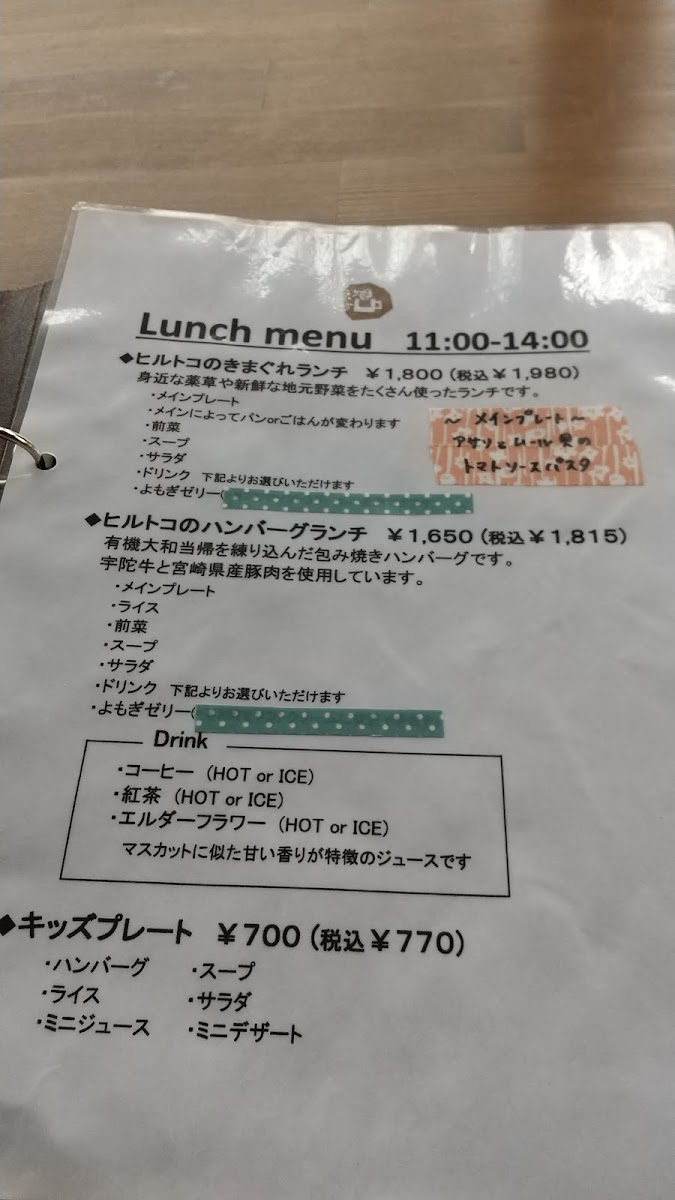 Lunch menu 11:00-14:00
◆ヒルトコのきまぐれランチ ￥1,800（税込￥1,980）
身近な薬草や新鮮な地元野菜をたくさん使ったランチです。
・メインプレート
・メインによってパンorごはんが変わります
・前菜
・スープ
・サラダ
・ドリンク 下記よりお選びいただけます
・よもぎゼリー(
～メインプレート～
アサリとムール貝の
トマトソースパスタ
◆ヒルトコのハンバーグランチ ￥1,650（税込￥1,815）
有機大和当帰を練り込んだ包み焼きハンバーグです。
宇陀牛と宮崎県産豚肉を使用しています。
・メインプレート
・ライス
・前菜
・スープ
・サラダ
・ドリンク 下記よりお選びいただけます
・よもぎゼリー(
Drink
・コーヒー （HOT or ICE）
・紅茶 （HOT or ICE）
・エルダーフラワー （HOT or ICE）
マスカットに似た甘い香りが特徴のジュースです
◆キッズプレート ￥700（税込￥770）
・ハンバーグ ・スープ
・ライス ・サラダ
・ミニジュース ・ミニデザート